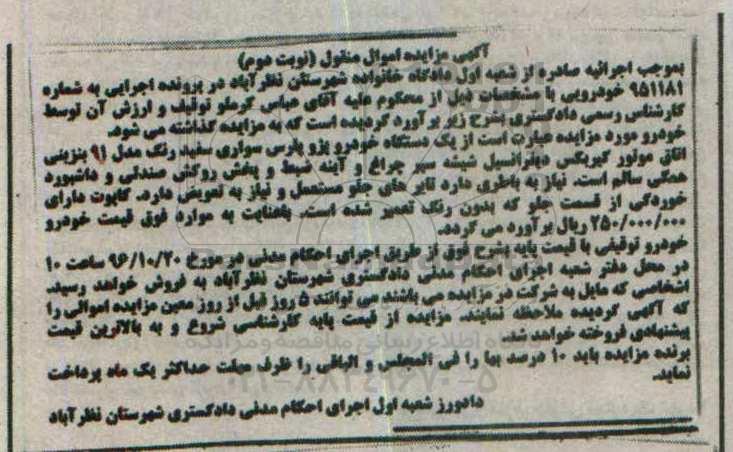 آگهی مزایده اموال منقول (نوبت دوم)
بموجب اجرائیه صادره از شعبه اول دادگاه خانواده شهرستان نظرآباد در پرونده اجرایی به شماره
۹۵۱۱۸۱ خودرویی با مشخصات ذیل از محکوم علیه آقای عباس گرملو توقیف و ارزش آن توسط
کارشناس رسمی دادگستری بشرح زیر برآورد گردیده است که به مزایده گذاشته می شود.
خودرو مورد مزایده عبارت است از یک دستگاه خودرو پژو پارس سواری سفید رنگ مدل ۹۱ بنزینی
اتاق موتور گیربکس دیفرانسیل شیشه سپر چراغ و آینه ضبط و پخش روکش صندلی و داشبورد
همگی سالم است. نیاز به باطری دارد تایر های جلو مستعمل و نیاز به تعویض دارد. کاپوت دارای
خوردگی از قسمت جلو که بدون رنگ تعمیر شده است. باعنایت به موارد فوق قیمت خودرو
۲۵۰/۰۰۰/۰۰۰ ریال برآورد می گردد.
خودرو توقیفی با قیمت پایه بشرح فوق از طریق اجرای احکام مدنی در مورخ ۹۶/۱۰/۲۰ ساعت ۱۰
در محل دفتر شعبه اجرای احکام مدنی دادگستری شهرستان نظرآباد به فروش خواهد رسید.
اشخاصی که مایل به شرکت در مزایده می باشند می توانند ۵ روز قبل از روز معین مزایده اموالی را
که آگهی گردیده ملاحظه نمایند. مزایده از قیمت پایه کارشناسی شروع و به بالاترین قیمت
پیشنهادی فروخته خواهد شد.
برنده مزایده باید ۱۰ درصد بها را فی المجلس و الباقی را ظرف مهلت حداکثر یک ماه پرداخت
نماید.
دادورز شعبه اول اجرای احکام مدنی دادگستری شهرستان نظرآباد